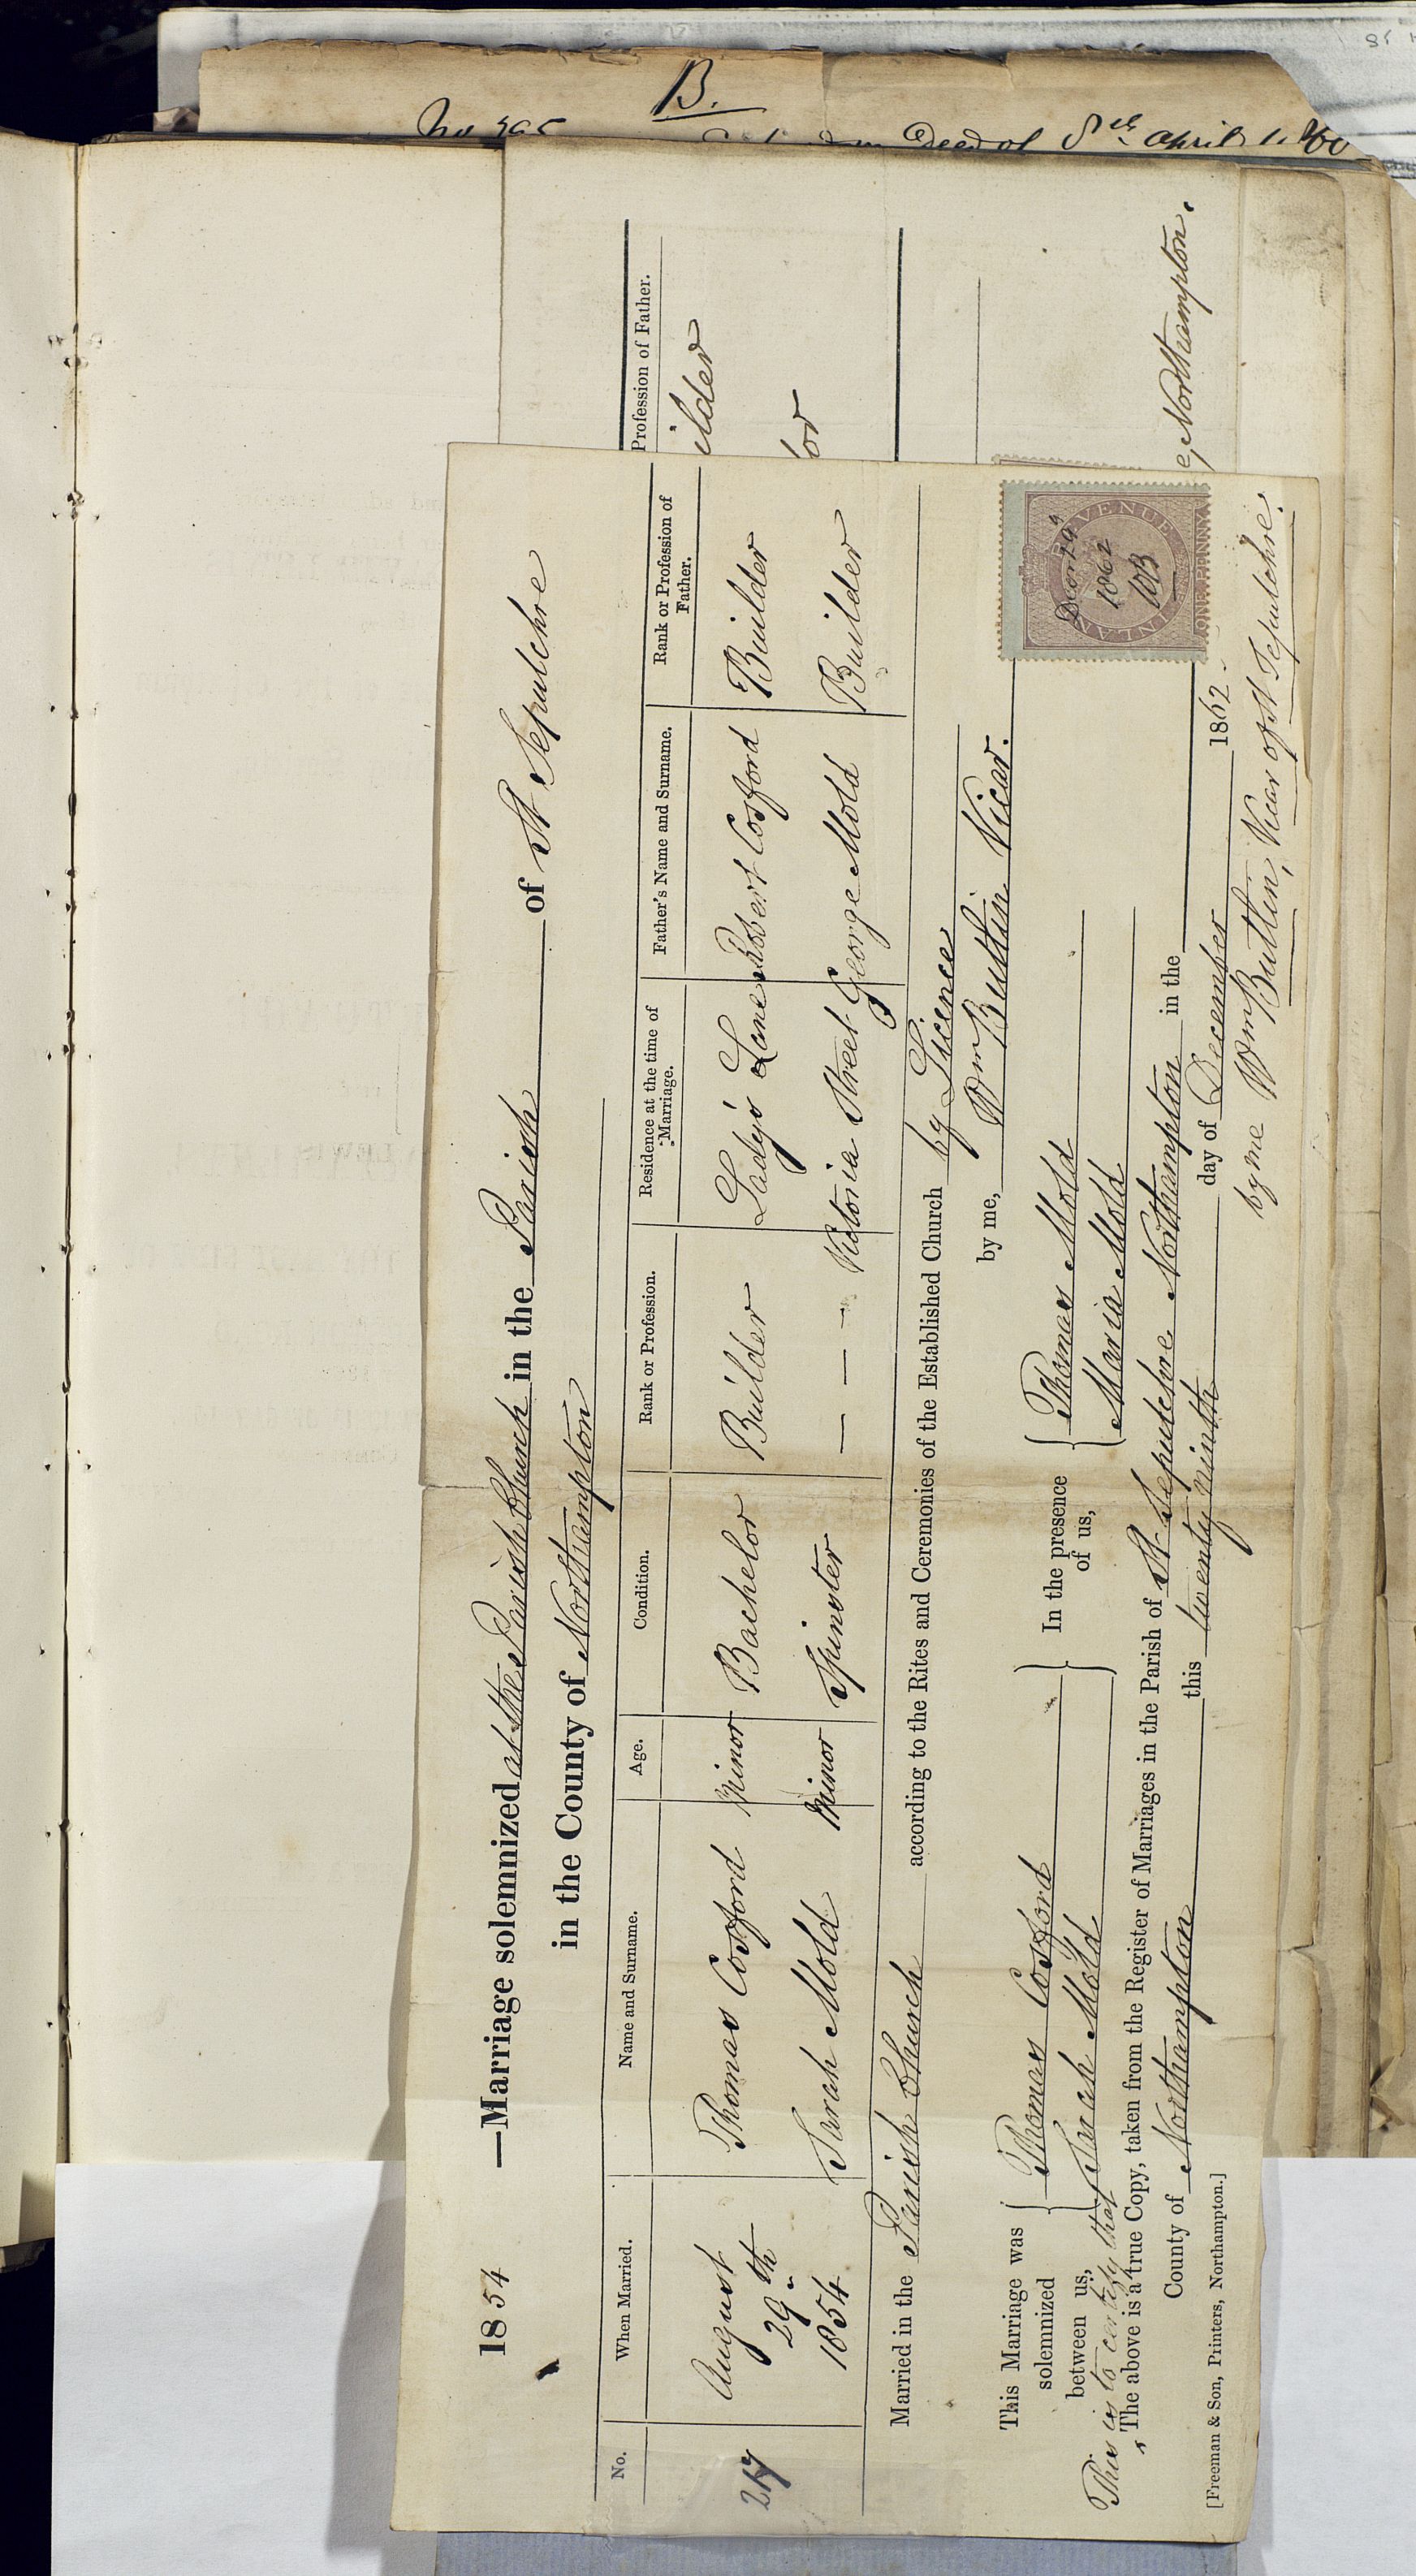 B.
April 1860
Profession of Father.
ilder
or
e, Northampton.
1854 —Marriage solemnized at the Parish Church in the Parish of St Sepulchre
in the County of Northampton
No. When Married. Name and Surname. Age. Condition. Rank or Profession. Residence at the time of Marriage. Father's Name and Surname. Rank or Profession of Father.
217 August 29th 1854
Thomas Cosford Minor Bachelor Builder Lady's Lane Robert Cosford Builder
Sarah Mold Minor Spinster — — — Victoria Street George Mold Builder
Married in the Parish Church according to the Rites and Ceremonies of the Established Church by Licence
by me, Wm Butlin Vicar.
This Marriage was solemnized between us, { Thomas Cosford } In the presence of us, { Thomas Mold
{ Sarah Mold } { Maria Mold
This is to certify that
The above is a true Copy, taken from the Register of Marriages in the Parish of St Sepulchre Northampton in the
County of Northampton this twenty ninth day of December 1862.
by me Wm Butlin, Vicar of St Sepulchre.
[Freeman & Son, Printers, Northampton.]
INLAND REVENUE
ONE PENNY
Decr 29
1862
WB